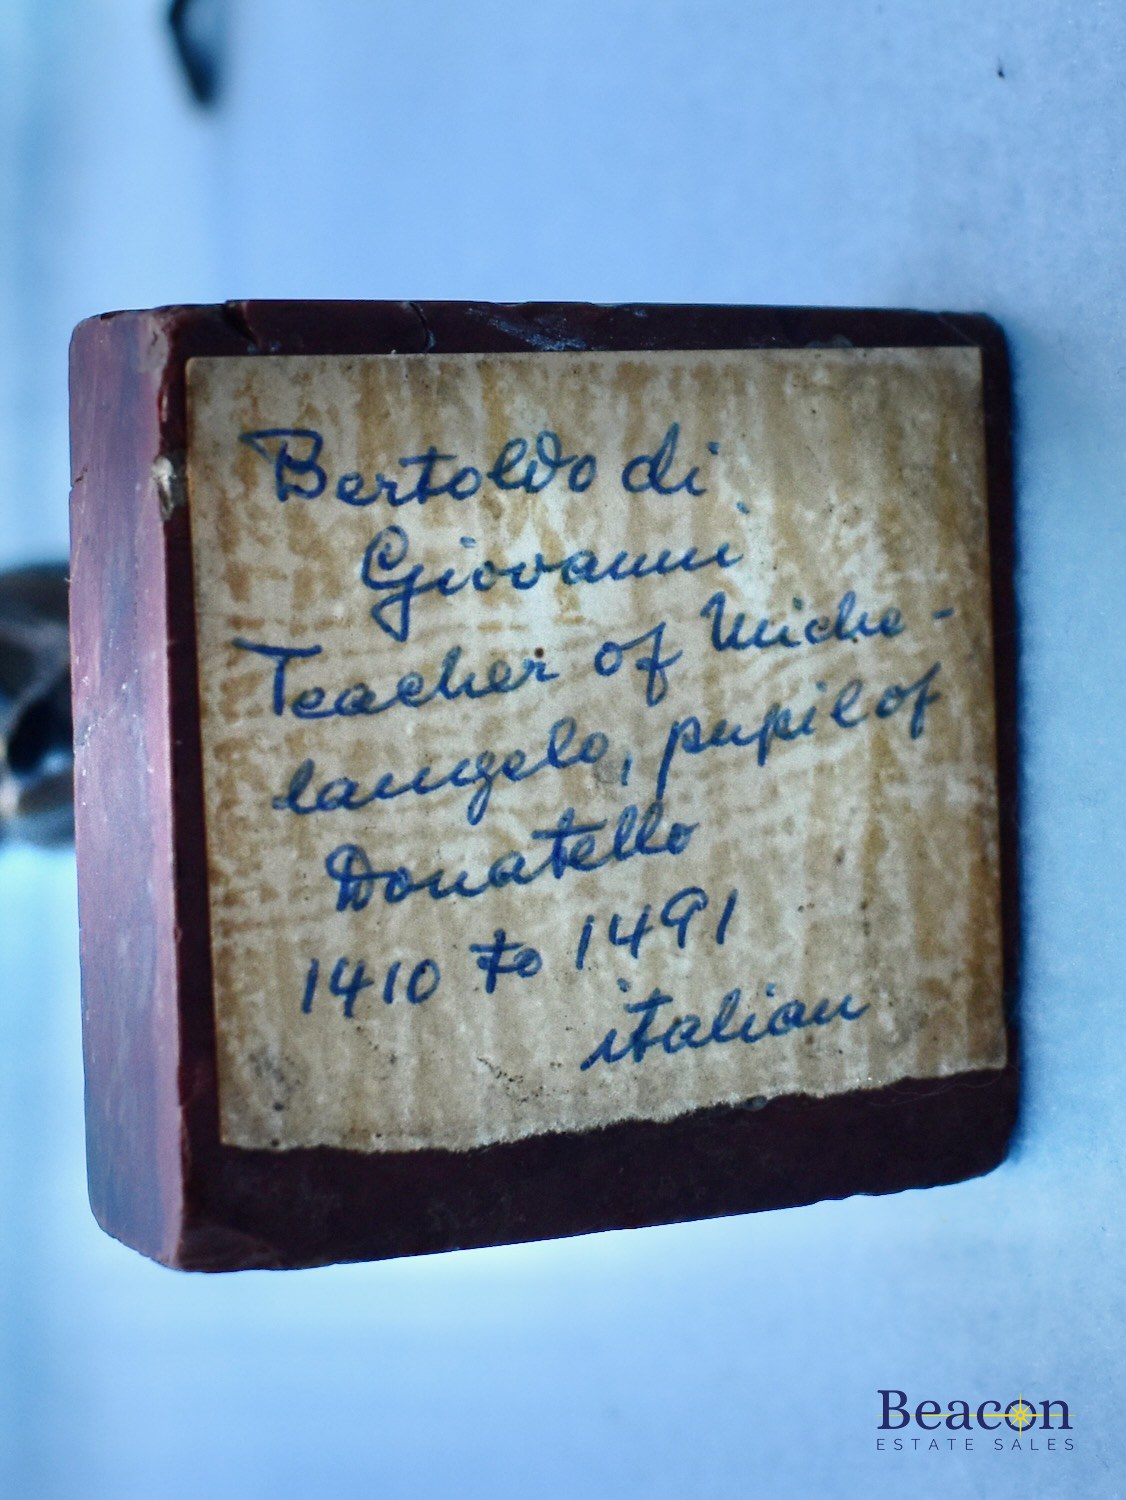 Bertoldo di
Giovanni
Teacher of Miche-
langelo, pupil of
Donatello
1410 to 1491
italian
Beacon
ESTATE SALES